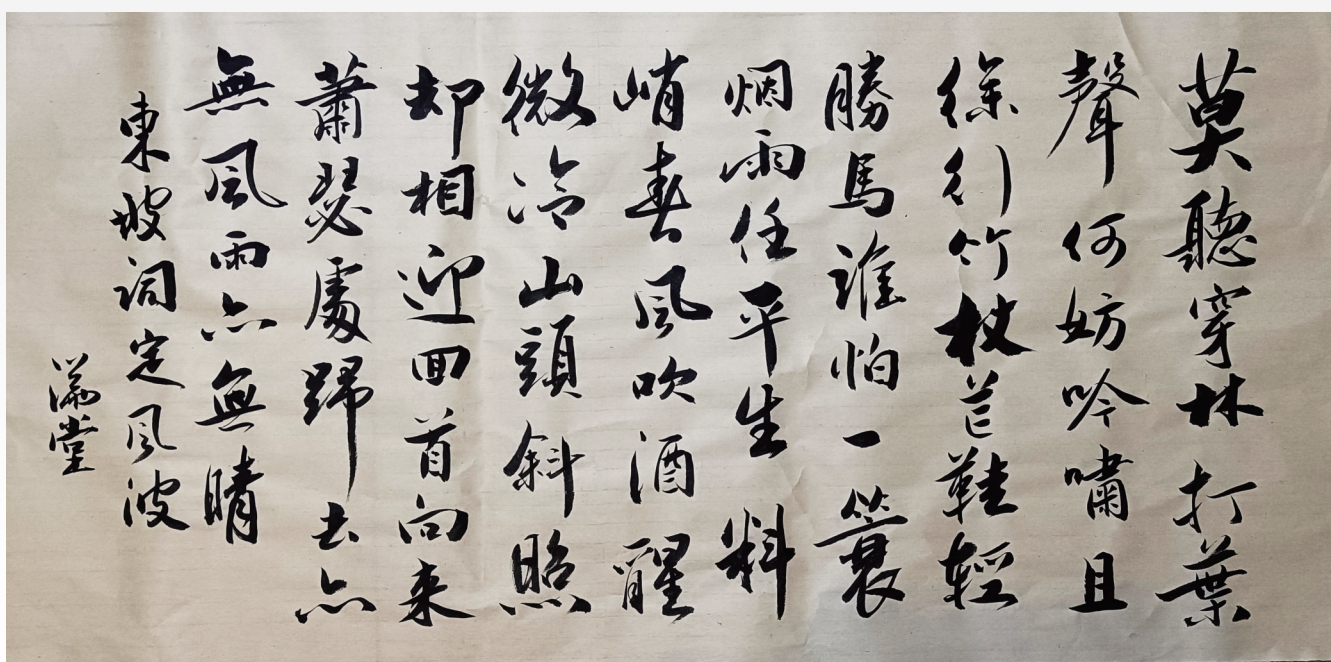 莫聽穿林打葉
聲何妨吟嘯且
徐行竹杖芒鞋輕
勝馬誰怕一蓑
烟雨任平生料
峭春風吹酒醒
微冷山頭斜照
却相迎回首向来
蕭瑟處歸去亦
無風雨亦無晴
東坡詞定風波
堂